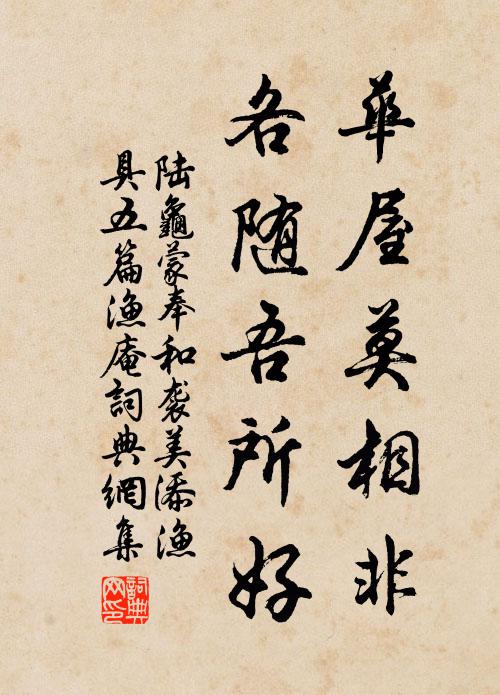 華屋莫相非
各随吾所好
陆龜蒙奉和袭美添渔
具五篇渔庵詞典網集
詞典网印